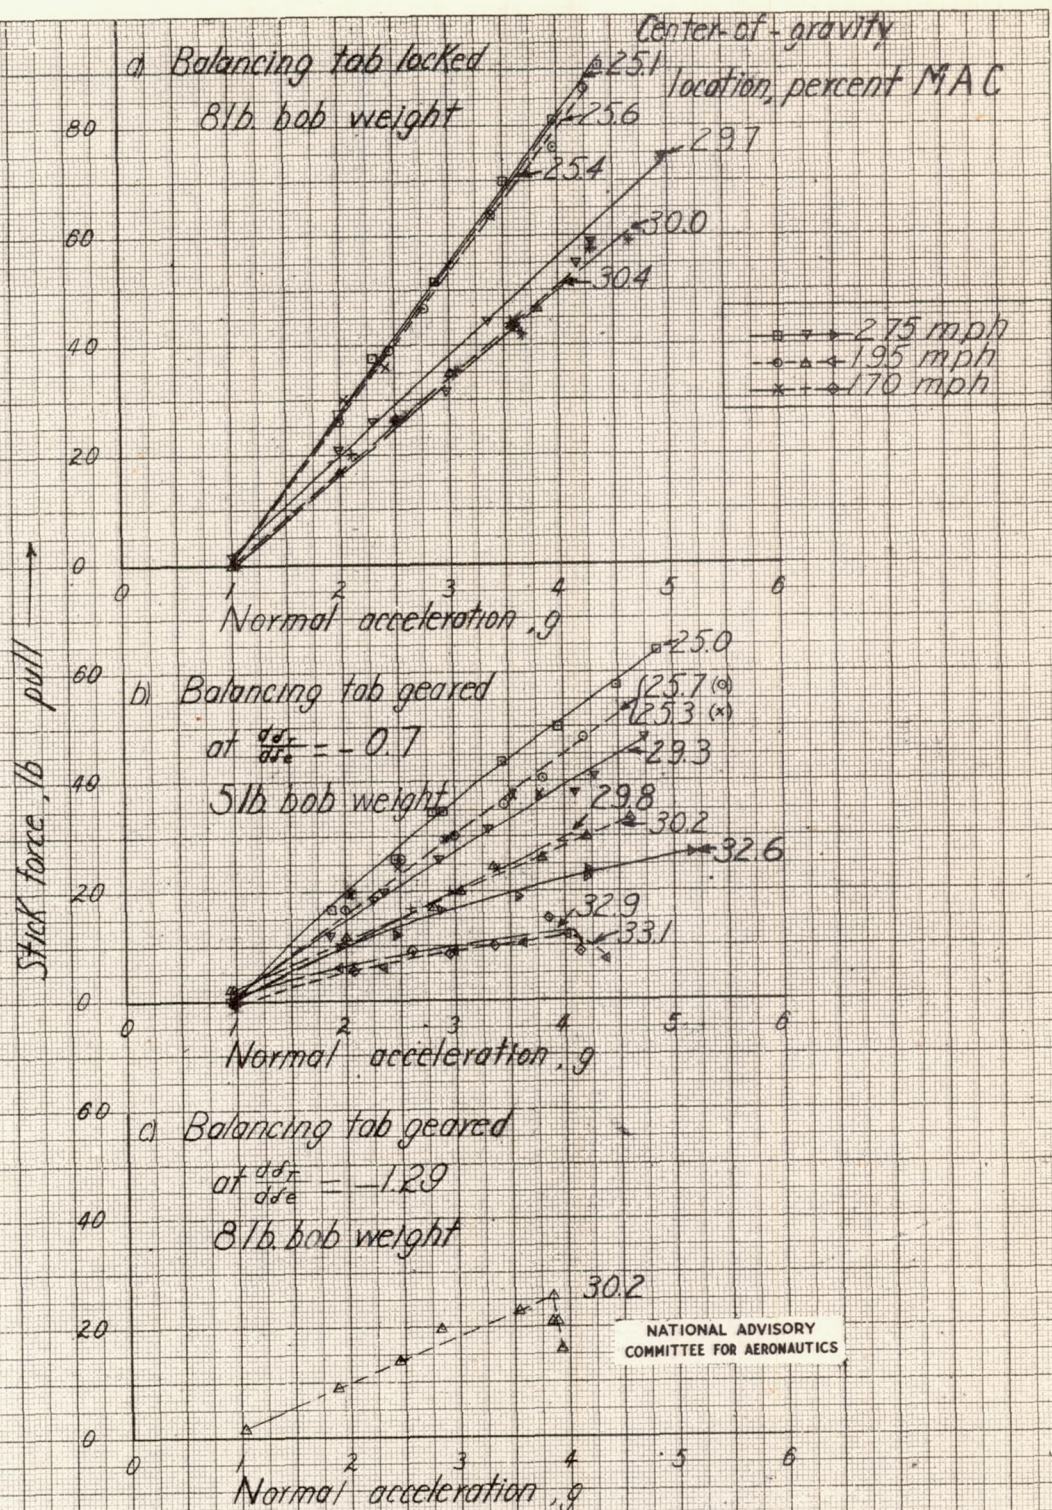 Center-of-gravity
location, percent MAC
a) Balancing tab locked
8 lb. bob weight
25.1
25.6
25.4
29.7
30.0
30.4
275 mph
195 mph
170 mph
80
60
40
20
0
0 1 2 3 4 5 6
Normal acceleration, g
Stick force, lb pull →
b) Balancing tab geared
at dδT/dδe = -0.7
5 lb. bob weight
25.0
25.7 (o)
25.3 (x)
29.3
29.8
30.2
32.6
32.9
33.1
60
40
20
0
0 1 2 3 4 5 6
Normal acceleration, g
c) Balancing tab geared
at dδT/dδe = -1.29
8 lb. bob weight
30.2
60
40
20
0
0 1 2 3 4 5 6
Normal acceleration, g
NATIONAL ADVISORY
COMMITTEE FOR AERONAUTICS